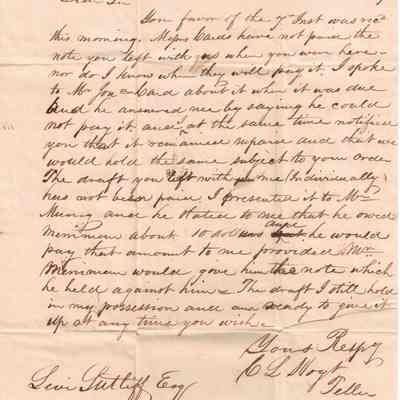 Dear Sir
Your favor of the 7th Inst was recd
this morning. Messrs Wards have not paid the
note you left with us when you were here –
nor do I know when they will pay it. I spoke
to Mr Jos Ward about it when it was due
and he answered me by saying he could
not pay it and at the same time notified
you that it remained unpaid and that we
would hold the same subject to your order
The draft you left with me (Individually)
has not been paid I presented it to Mr
and he stated to me that he owed
Merriman about 50 dols and he would
pay that amount to me provided Mr
Merriman would give him the note which
he held against him – The draft I still hold
in my possession and am ready to give it
up at any time you wish –
Yours Respy
C L Hoyt
Teller
Levi Sutliff Esq